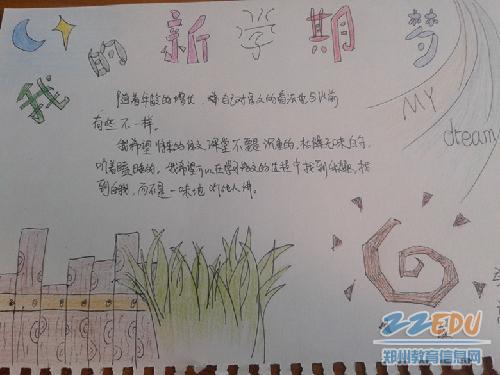 我的新学期梦
MY
dream
随着年龄的增长,我自己对语文的看法也与以前
有些不一样。
我希望将来的语文课堂不要是沉重的,枯燥无味的
听着瞌睡的。我希望可以在学习语文的过程中找到乐趣,找
到自我,而不是一味地听他人讲。
ZZEDU
郑州教育信息网